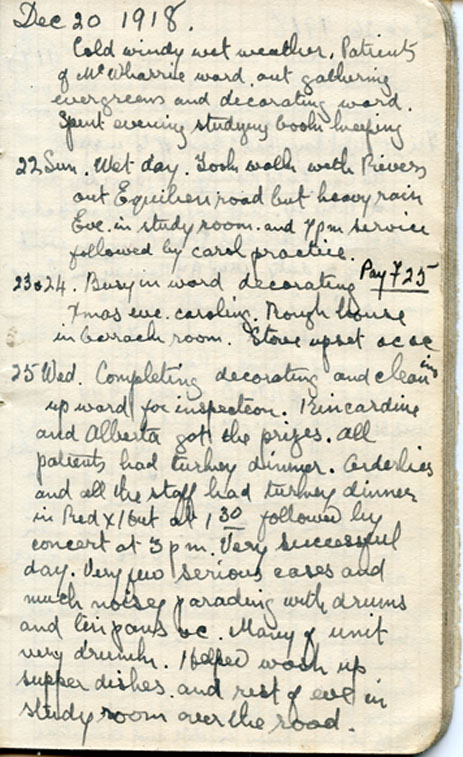 Dec 20 1918.
Cold windy wet weather. Patients
of McWharrie ward out gathering
evergreens and decorating ward.
Spent evening studying book keeping
22 Sun. Wet day. Took walk with Rivers
out Equihen road but heavy rain
Eve. in study room. and 7pm service
followed by carol practice.
23 & 24. Busy in ward decorating Pay F 25
Xmas eve. caroling. Rough house
in barrack room. Stove upset &c &c
25 Wed. Completing decorating and cleaning
up ward for inspection. Kincardine
and Alberta got the prizes. All
patients had turkey dinner. Orderlies
and all the staff had turkey dinner
in Red X hut at 1 30 followed by
concert at 3 pm. Very successful
day. Very few serious cases and
much noisey parading with drums
and tin pans &c. Many of unit
very drunk. Helped wash up
supper dishes. and rest of eve in
study room over the road.